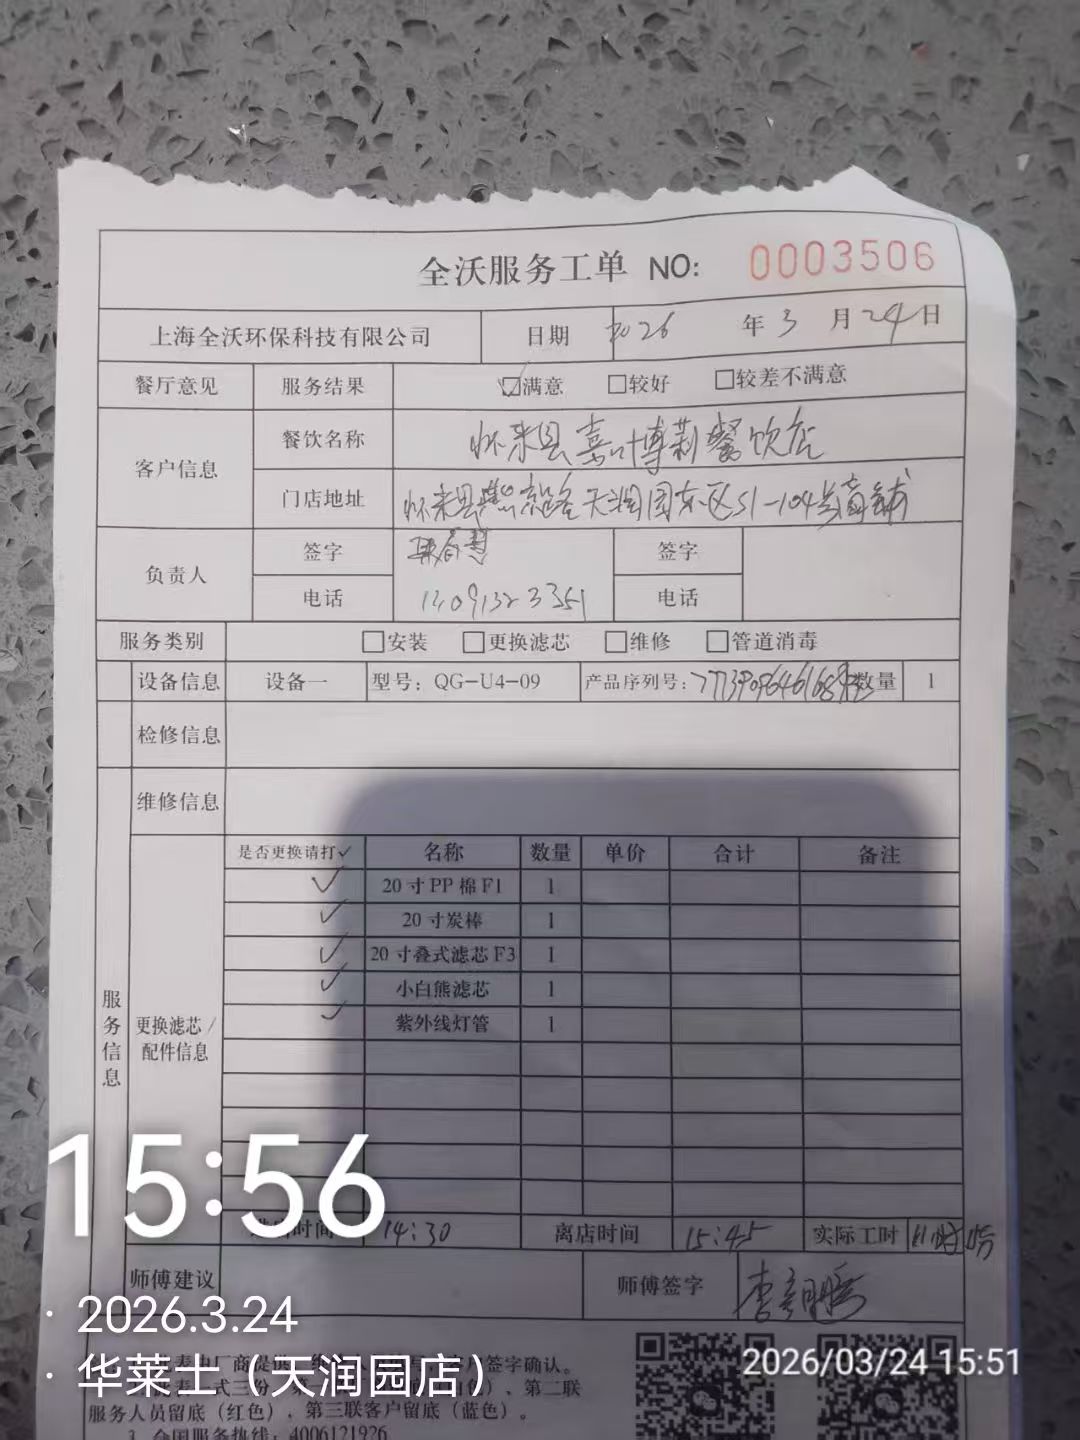 全沃服务工单 NO: 0003506
上海全沃环保科技有限公司 日期 2026 年 3 月 24 日
餐厅意见 服务结果 ☑满意 □较好 □较差不满意
客户信息 餐饮名称 怀来县嘉叶博莉餐饮店
门店地址 怀来县 路天润园东区S1-104号商铺
负责人 签字 签字
电话 电话
服务类别 □安装 □更换滤芯 □维修 □管道消毒
设备信息 设备一 型号: QG-U4-09 产品序列号: 数量 1
检修信息
维修信息
服务信息
更换滤芯/配件信息
是否更换请打✓ 名称 数量 单价 合计 备注
✓ 20寸PP棉F1 1
✓ 20寸炭棒 1
✓ 20寸叠式滤芯F3 1
✓ 小白熊滤芯 1
✓ 紫外线灯管 1
时间 14:30 离店时间 15:45 实际工时
师傅建议 师傅签字
15:56
· 2026.3.24
· 华莱士（天润园店）
2026/03/24 15:51
签字确认。
第二联
服务人员留底（红色）、第三联客户留底（蓝色）。
3、全国服务热线: 4006121926